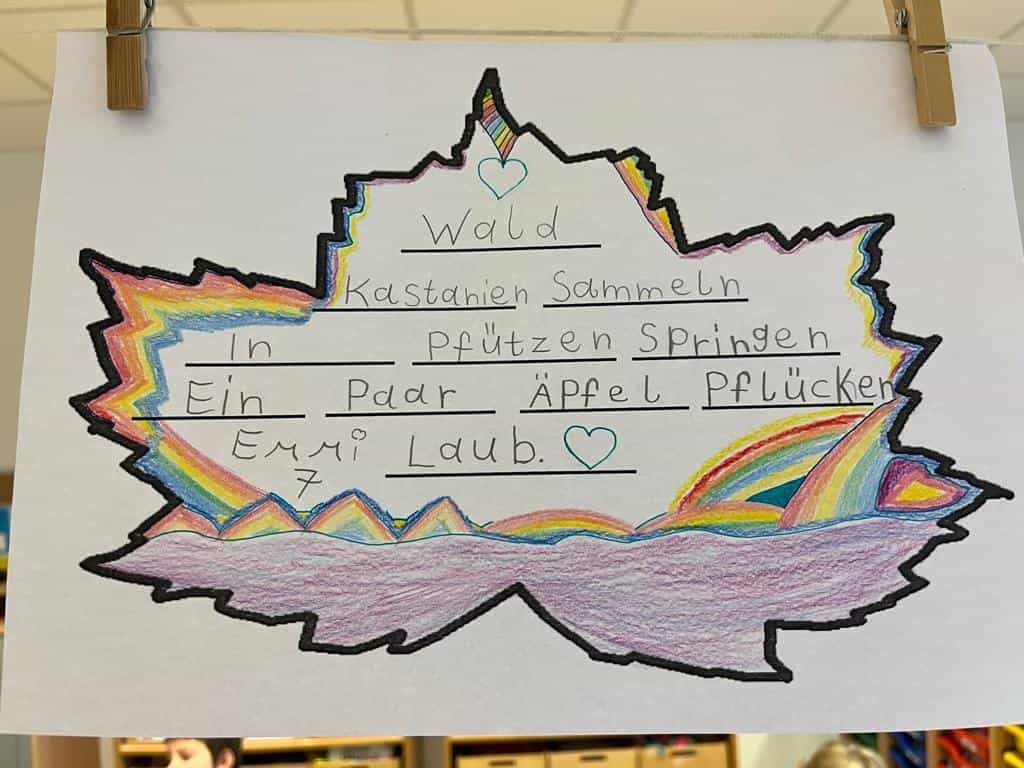 Wald
Kastanien Sammeln
In Pfützen Springen
Ein Paar Äpfel Pflücken
Emmi Laub.
7